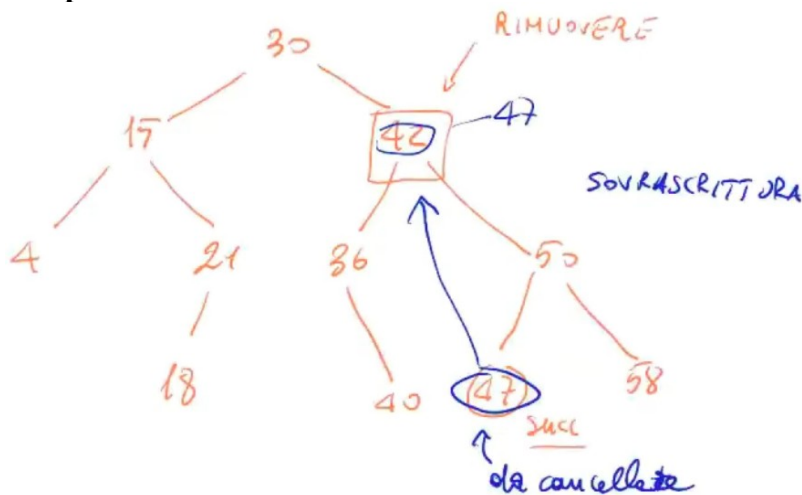 RIMUOVERE
30
15
42
47
SOVRASCRITTURA
4
21
36
50
18
40
47
58
succ
da cancellare